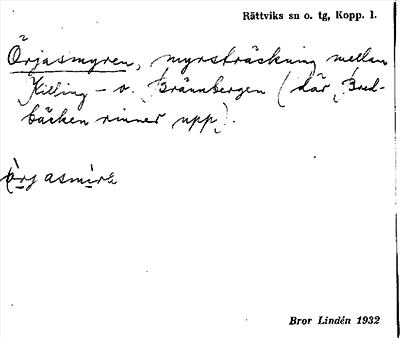 Rättviks sn o. tg, Kopp. l.
Örjasmyren, myrsträckning mellan
Killing- o. Brännbergen (där Bred-
bäcken rinner upp).
Bror Lindén 1932